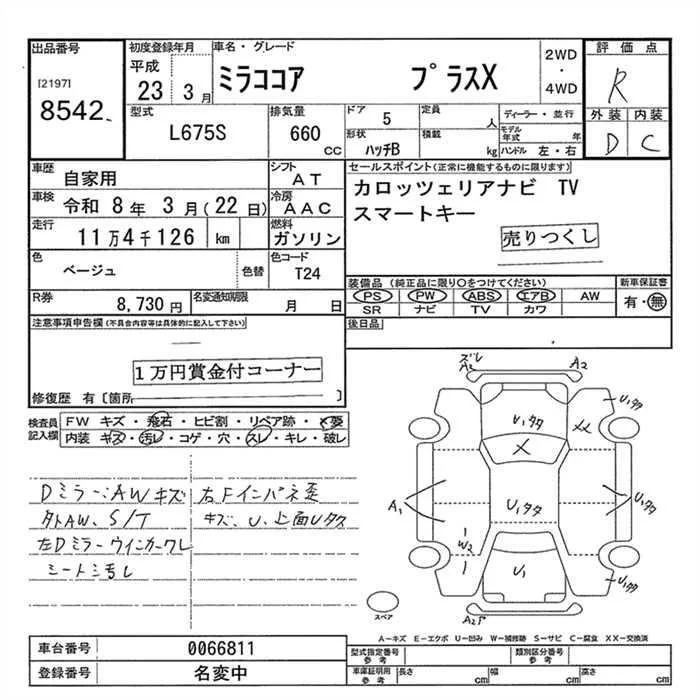 出品番号
[2197]
8542
初度登録年月
平成
23 3月
車名・グレード
ミラココア プラスX
2WD
・
4WD
評価点
R
外装 内装
D C
型式
L675S
排気量
660
CC
ドア 5
定員 人
ディーラー・並行
モデル年式 年
形状 ハッチB
積載 kg
ハンドル 左・右
車歴 自家用
シフト AT
車検 令和 8年 3月(22日)
冷房 AAC
走行 11万4千126 km
燃料 ガソリン
色 ベージュ
色替
色コード T24
R券 8,730円
名変通知期限 月 日
セールスポイント(正常に機能するものに限ります)
カロッツェリアナビ TV
スマートキー
売りつくし
装備品(純正品に限り○をつけてください)
新車保証書
PS PW ABS エアB AW
有・無
SR ナビ TV カワ
後日品
注意事項申告欄(不具合内容等は具体的に記入して下さい)
1万円賞金付コーナー
修復歴 有〔箇所 〕
検査員記入欄
FW キズ・飛石・ヒビ割・リペア跡・×要
内装 キズ・汚レ・コゲ・穴・スレ・キレ・破レ
Dミラー:AWキズ
外AW、S/T
左Dミラーウインカーワレ
右Fインパネ歪
キズ、U、上面Uタタ
ズレ
A2 A2
U1タタ
U1タタ
XX
X
A1
U1タタ
U1タタ
W2
U1
U1タタ
スペア
A2
A―キズ E―エクボ U―凹み W―補修跡 S―サビ C―腐食 XX―交換済
車台番号 0066811
登録番号 名変中
型式指定番号 参考
類別区分番号 参考
車庫証明用 参考
長さ cm
幅 cm
高さ cm